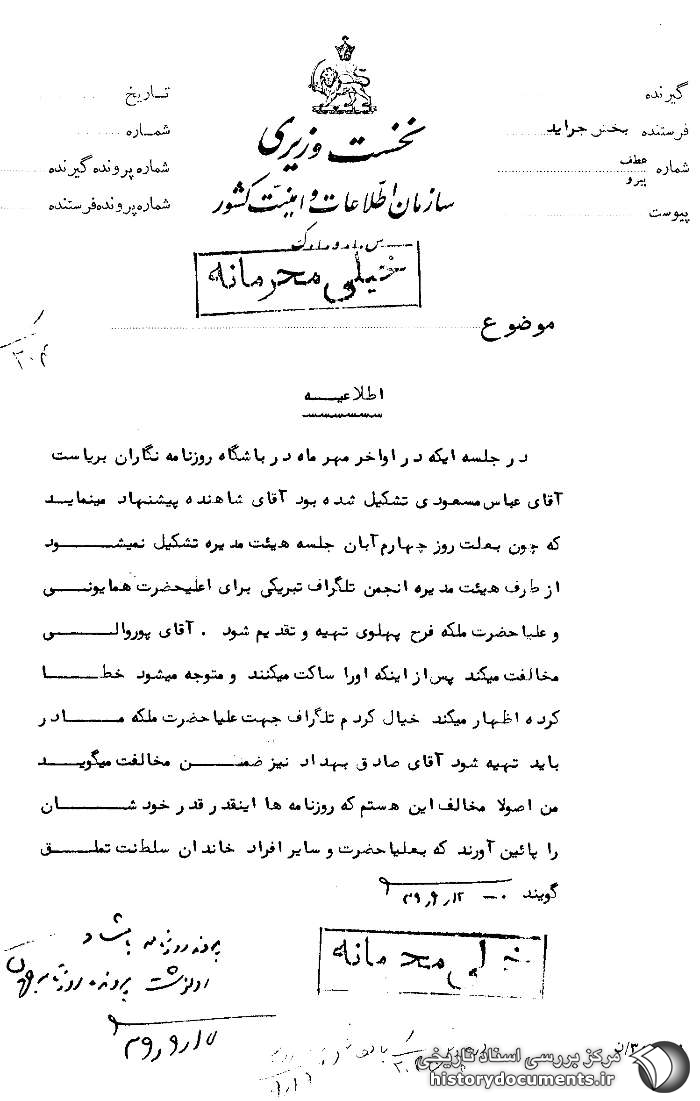 نخست وزیری
سازمان اطلاعات و امنیت کشور
س.ا.و.ا.ك
گیرنده
فرستنده بخش جراید
شماره عطف
پیرو
پیوست
تاریخ
شماره
شماره پرونده گیرنده
شماره پرونده فرستنده
خیلی محرمانه
موضوع
۳۰۴
اطلاعیه
در جلسه ایکه در اواخر مهر ماه در باشگاه روزنامه نگاران بریاست
آقای عباس مسعودی تشکیل شده بود آقای شاهنده پیشنهاد مینماید
که چون بعلت روز چهارم آبان جلسه هیئت مدیره تشکیل نمیشود
از طرف هیئت مدیره انجمن تلگراف تبریکی برای اعلیحضرت همایونی
و علیا حضرت ملکه فرح پهلوی تهیه و تقدیم شود . آقای پوروالی
مخالفت میکند پس از اینکه اورا ساکت میکنند و متوجه میشود خطا
کرده اظهار میکند خیال کردم تلگراف جهت علیا حضرت ملکه مادر
باید تهیه شود آقای صادق بهداد نیز ضمن مخالفت میگوید
من اصولا مخالف این هستم که روزنامه ها اینقدر قدر خودشان
را پائین آورند که بعلیا حضرت و سایر افراد خاندان سلطنت تملق
گویند ۰- ۱۲ر۹ر۳۹
خیلی محرمانه
پرونده روزنامه بامشاد
پرونده روزنامه جهان
۱۷ر۹ر۳۹
مرکز بررسی اسناد تاریخی
historydocuments.ir